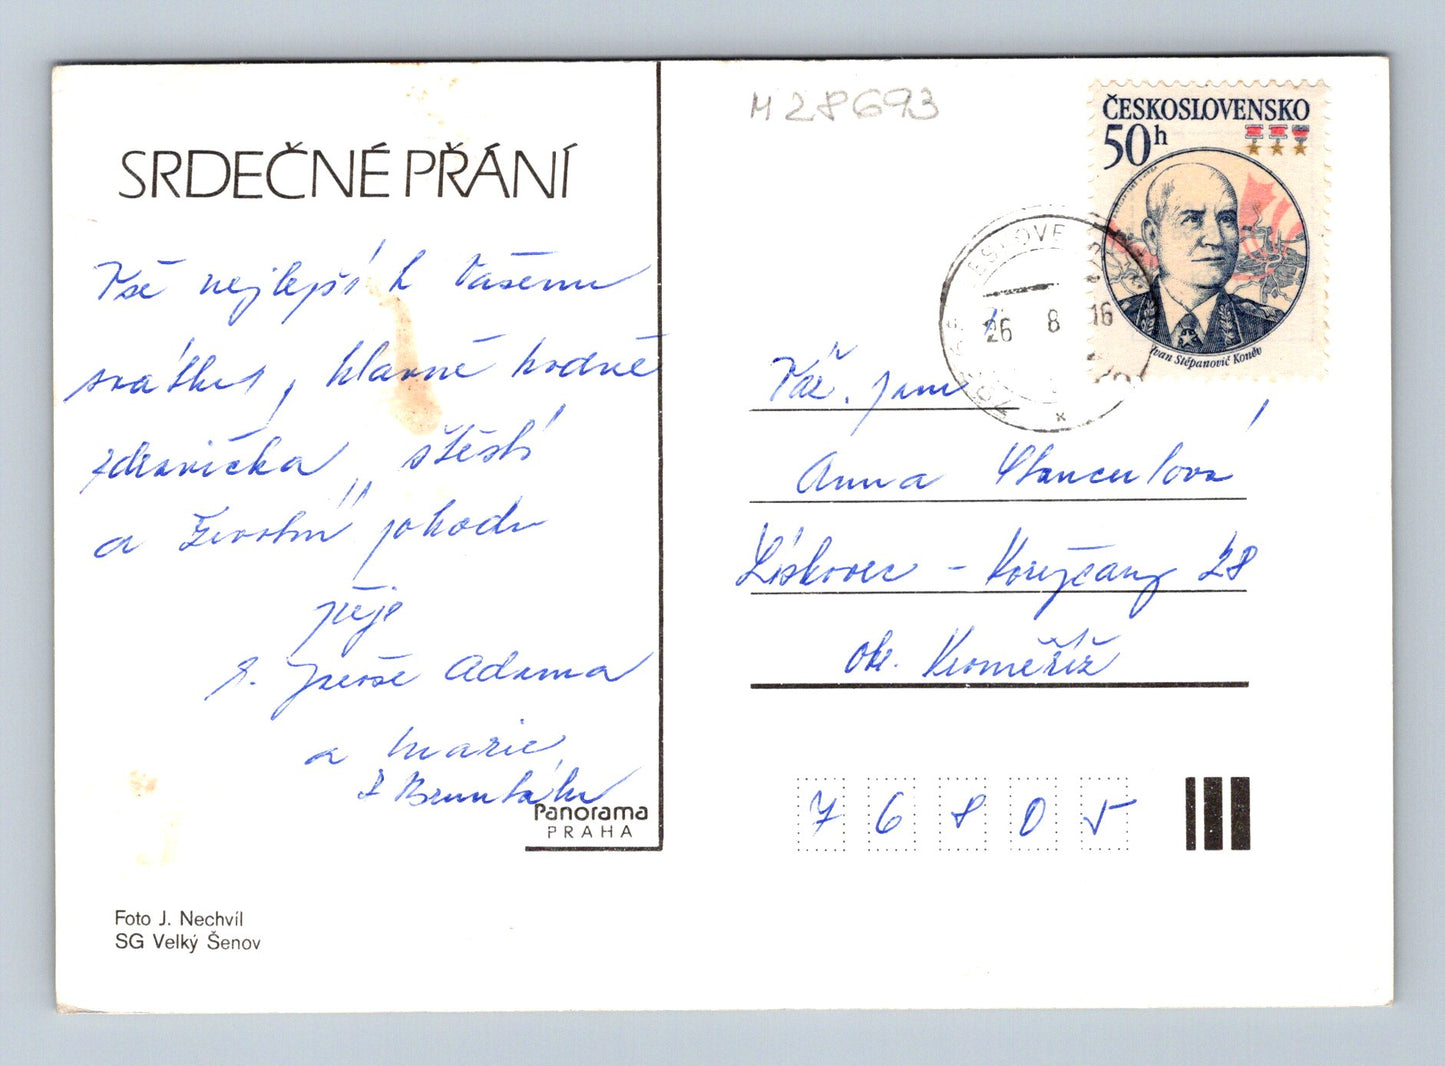 SRDEČNÉ PŘÁNÍ
Vše nejlepší k Vašemu
svátku, hlavně hodně
zdravíčka, štěstí
a životní pohodu
přeje
Adama
a Marie
z Bruntálu
Panorama
PRAHA
Foto J. Nechvíl
SG Velký Šenov
M 28693
ČESKOSLOVENSKO
50h
Ivan Stěpanovič Koněv
26 8 16
Váž. paní
Anna
Lískovec - Koryčany 28
okr. Kroměříž
76805